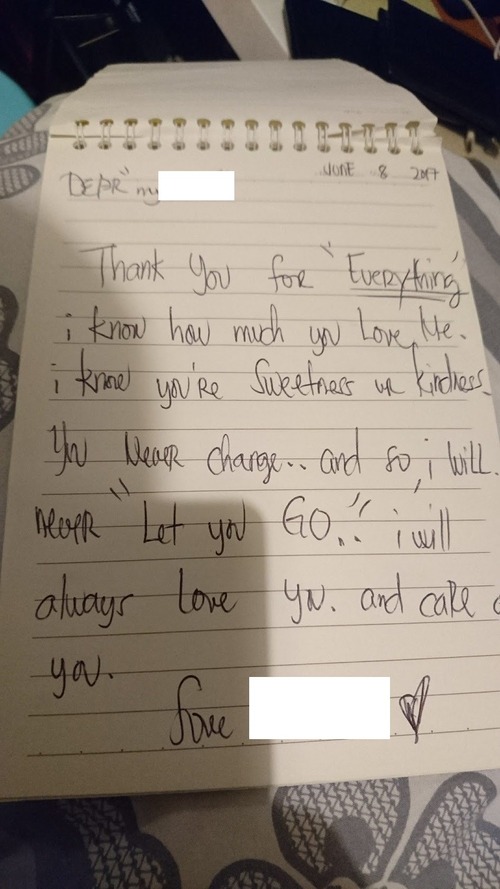 JUNE 8 2017
DEAR" my
Thank You for "Everything"
i know how much you Love Me.
i know you're Sweetness kindness.
You Never change.. and so, i will
never "Let you GO.." i will
always love you. and care
you.
Love